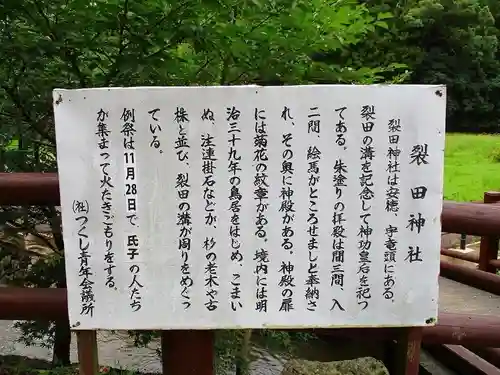 裂田神社
裂田神社は安徳、寺竜頭にある。
裂田の溝を記念して神功皇后を祀つ
てある。朱塗りの拝殿は間三間、入
二間、絵馬がところせましと奉納さ
れ、その奥に神殿がある。神殿の扉
には菊花の紋章がある。境内には明
治三十九年の鳥居をはじめ、こまい
ぬ、注連掛石などが、杉の老木や古
株と並び、裂田の溝が周りをめぐっ
ている。
例祭は11月28日で、氏子の人たち
が集まって火たきごもりをする。
(社)つくし青年会議所